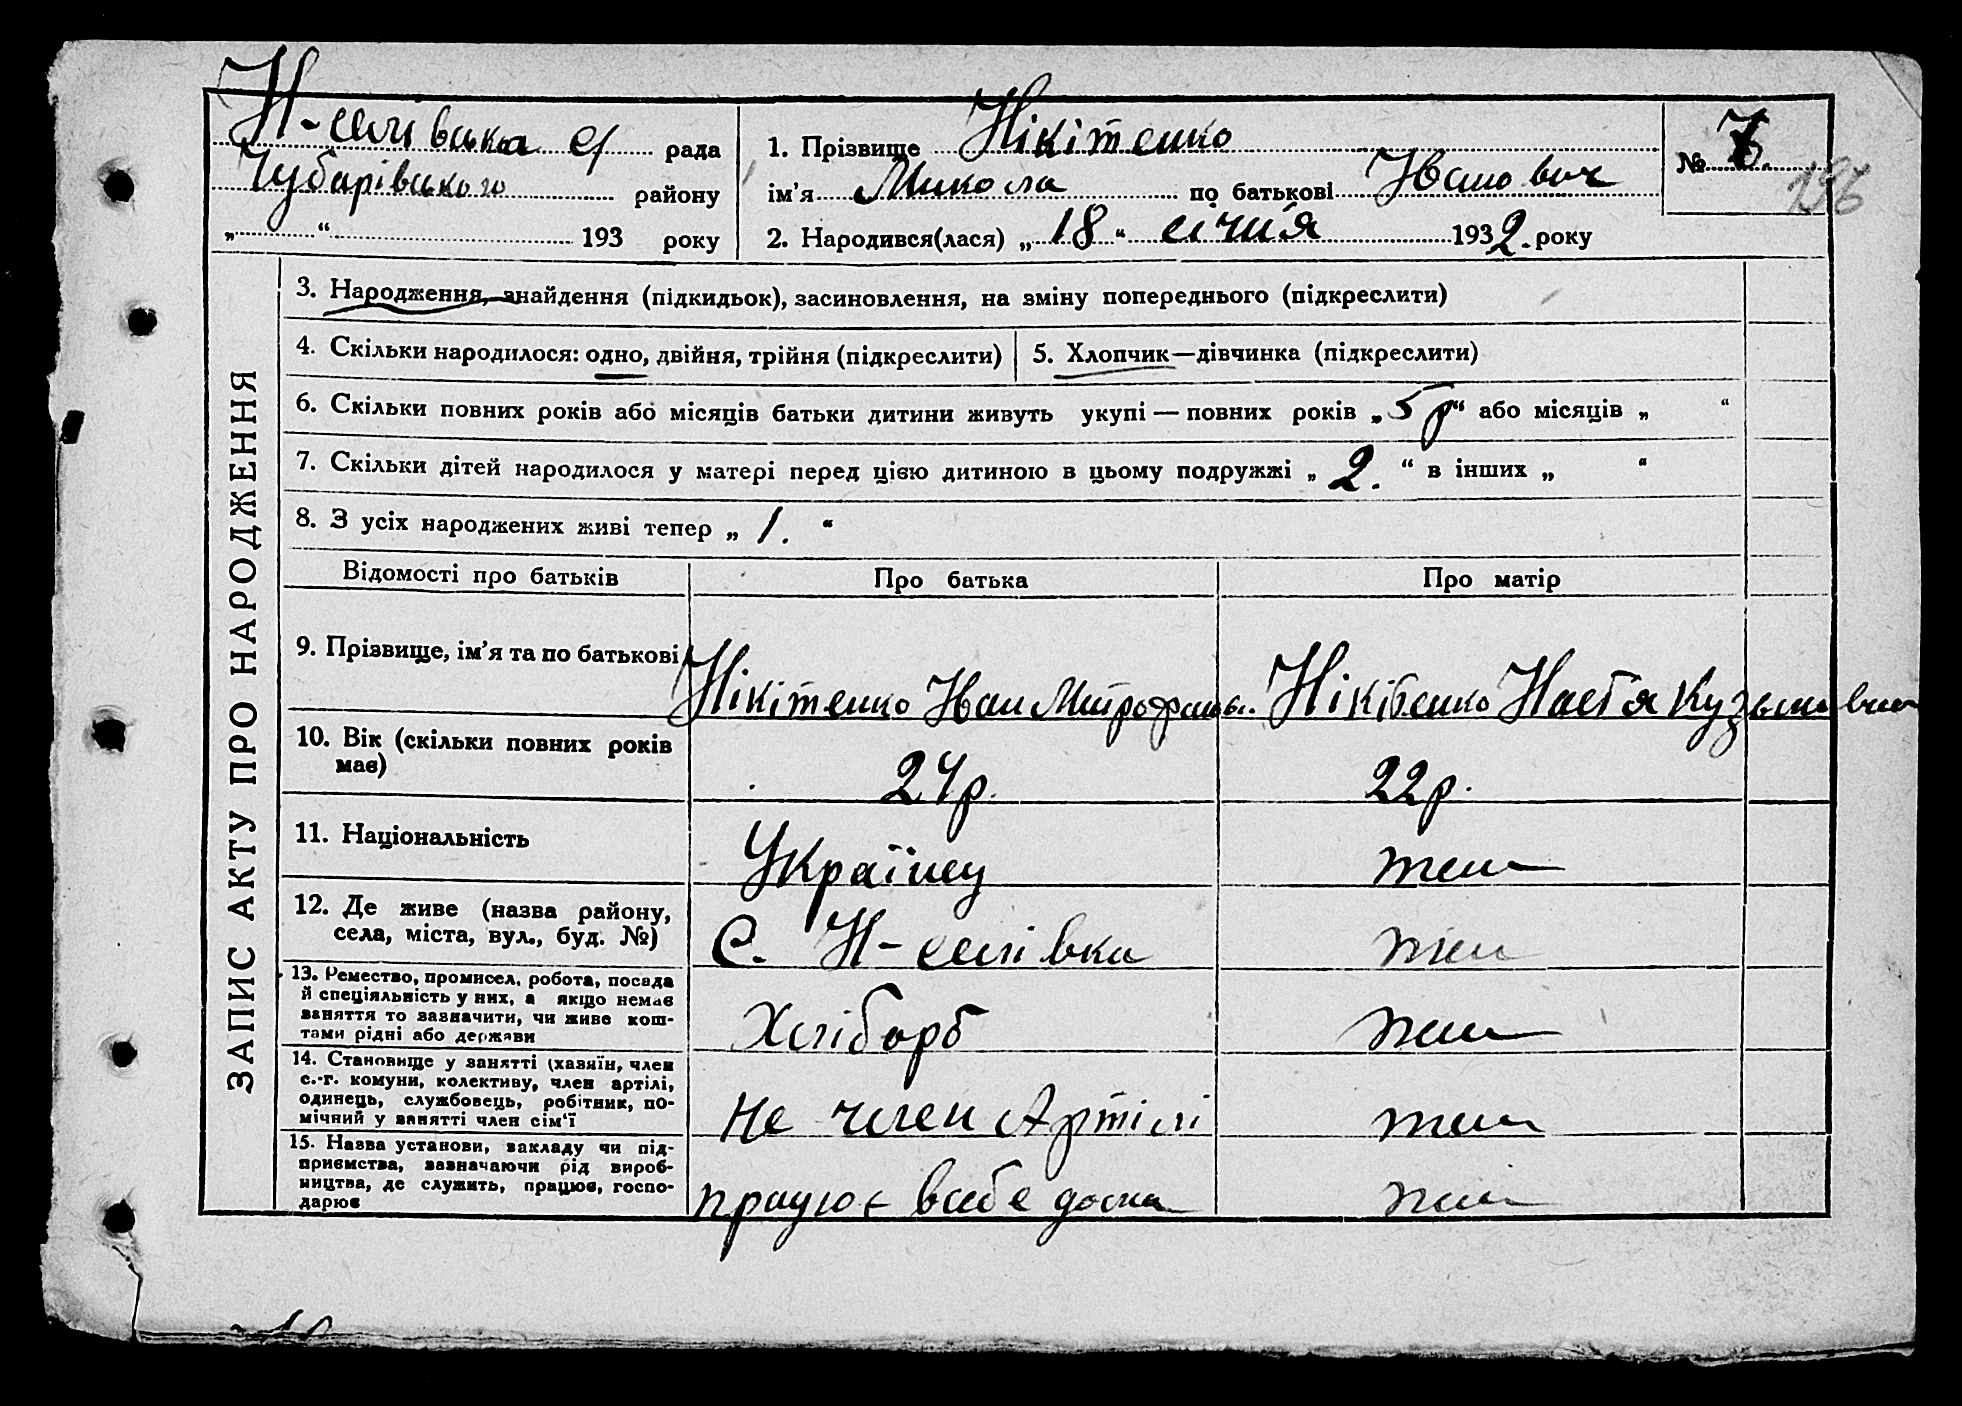 Н-селівська с/ рада
Чубарівського району
„ “ 193 року
1. Прізвище Нікітенко
ім’я Микола по батькові Іванович
2. Народився(лася) „ 18 “ січня 1932. року
№ 196
ЗАПИС АКТУ ПРО НАРОДЖЕННЯ
3. Народження, знайдення (підкидьок), засиновлення, на зміну попереднього (підкреслити)
4. Скільки народилося: одно, двійня, трійня (підкреслити)
5. Хлопчик—дівчинка (підкреслити)
6. Скільки повних років або місяців батьки дитини живуть укупі — повних років „ 5 р “ або місяців „ “
7. Скільки дітей народилося у матері перед цією дитиною в цьому подружжі „ 2. “ в інших „ “
8. З усіх народжених живі тепер „ 1. “
Відомості про батьків Про батька Про матір
9. Прізвище, ім’я та по батькові
Нікітенко Іван Митрофанов. Нікітенко Настя Кузьмівна
10. Вік (скільки повних років
має)
24р. 22р.
11. Національність
Українец теж
12. Де живе (назва району,
села, міста, вул., буд. №)
С. Н-селівка теж
13. Ремество, промисел, робота, посада
й спеціяльність у них, а якщо немає
заняття то зазначити, чи живе кош-
тами рідні або держави
Хлібороб теж
14. Становище у занятті (хазяїн, член
с.-г. комуни, колективу, член артілі,
одинець, службовець, робітник, по-
мічний у занятті член сім‘ї
Не член Артілі теж
15. Назва установи, закладу чи під-
приємства, зазначаючи рід вироб-
ництва, де служить, працює, госпо-
дарює
працює всебе дома теж